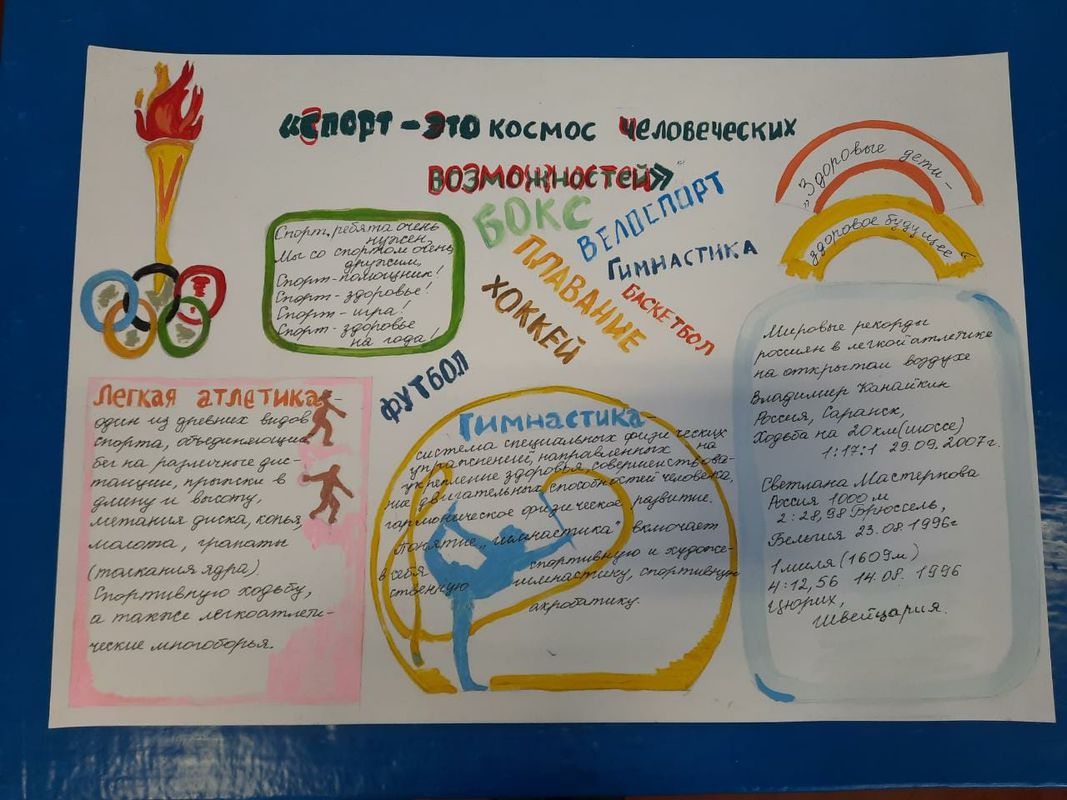 «Спорт – это космос человеческих
возможностей»
"Здоровые дети –
здоровое будущее"
Спорт, ребята очень
нужен,
Мы со спортом очень
дружим,
Спорт – помощник!
Спорт – здоровье!
Спорт – игра!
Спорт – здоровье
на года!
БОКС
ВЕЛОСПОРТ
ПЛАВАНИЕ
ГИМНАСТИКА
ХОККЕЙ
БАСКЕТБОЛ
ФУТБОЛ
Легкая атлетика –
один из древних видов
спорта, объединяющие
бег на различные дис-
танции, прыжки в
длину и высоту,
метания диска, копья
молота, гранаты
(толкания ядра).
Спортивную ходьбу,
а также легкоатлети-
ческие многоборья.
Гимнастика –
система специальных физических
упражнений, направленных на
укрепление здоровья, совершенствова-
ние двигательных способностей человека,
гармоническое физическое развитие.
Понятие „гимнастика" включает
в себя спортивную и художе-
ственную гимнастику, спортивную
акробатику.
Мировые рекорды
россиян в легкой атлетике
на открытом воздухе
Владимир Канайкин
Россия, Саранск,
Ходьба на 20 км (шоссе)
1:17:1 29.09.2007г.
Светлана Мастеркова
Россия 1000 м
2:28,98 Брюссель,
Бельгия 23.08.1996г
1 миля (1609м)
4:12,56 14.08. 1996
Цюрих,
Швейцария.